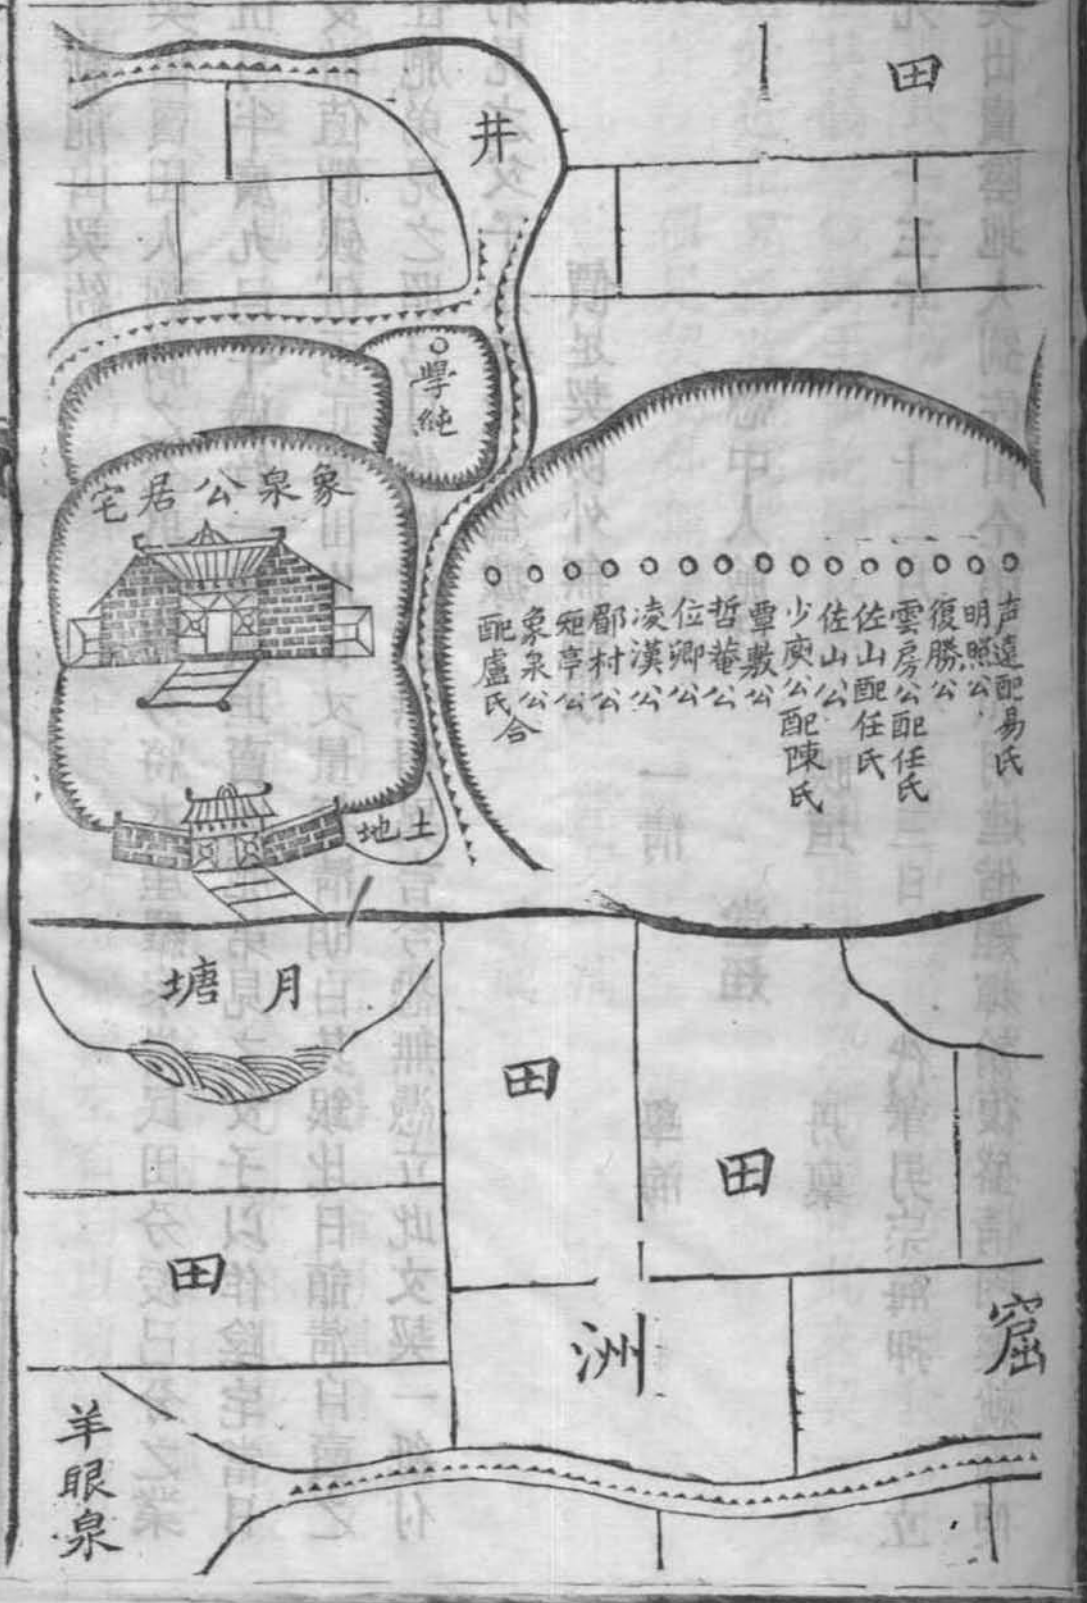 田
井
學純
象泉公居宅
声遠配易氏
明照公
復勝公
雲房公配任氏
佐山配任氏
佐山公
少庾公配陳氏
覃敷公
哲菴公
位卿公
凌漢公
郿村公
矩亭公
象泉公
配盧氏
合
土地
月塘
田
田
田
洲
窟
羊眼泉